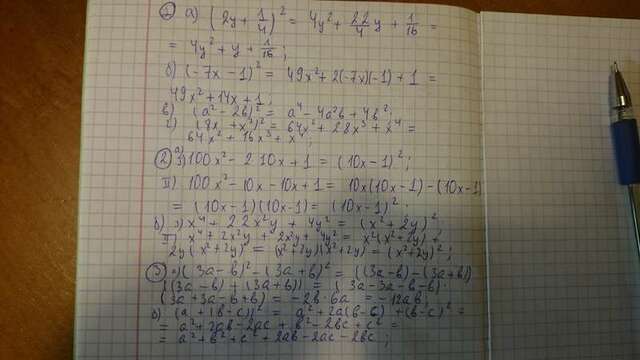 ① а) (2y + 1/4)² = 4y² + 2·2/4 y + 1/16 =
= 4y² + y + 1/16 ;
б) (-7x - 1)² = 49x² + 2(-7x)(-1) + 1 =
49x² + 14x + 1 ;
в) (a² - 2b)² = a⁴ - 4a²b + 4b² ;
г) (8x + x²)² = 64x² + 2·8x³ + x⁴ =
64x² + 16x³ + x⁴ ;
② а) I) 100x² - 2·10x + 1 = (10x - 1)² ;
II) 100x² - 10x - 10x + 1 = 10x(10x - 1) - (10x - 1)
= (10x - 1)(10x - 1) = (10x - 1)² .
б) I) x⁴ + 2·2x²y + 4y² = (x² + 2y)²
II) x⁴ + 2x²y + 2x²y + 4y² = x²(x² + 2y) +
2y(x² + 2y) = (x² + 2y)(x² + 2y) = (x² + 2y)² ;
③ а) (3a - b)² - (3a + b)² = ((3a - b) - (3a + b))
((3a - b) + (3a + b)) = (3a - 3a - b - b) ·
(3a + 3a - b + b) = -2b · 6a = -12ab ;
б) (a + (b - c))² = a² + 2a(b - c) + (b - c)² =
= a² + 2ab - 2ac + b² - 2bc + c² =
= a² + b² + c² + 2ab - 2ac - 2bc ;